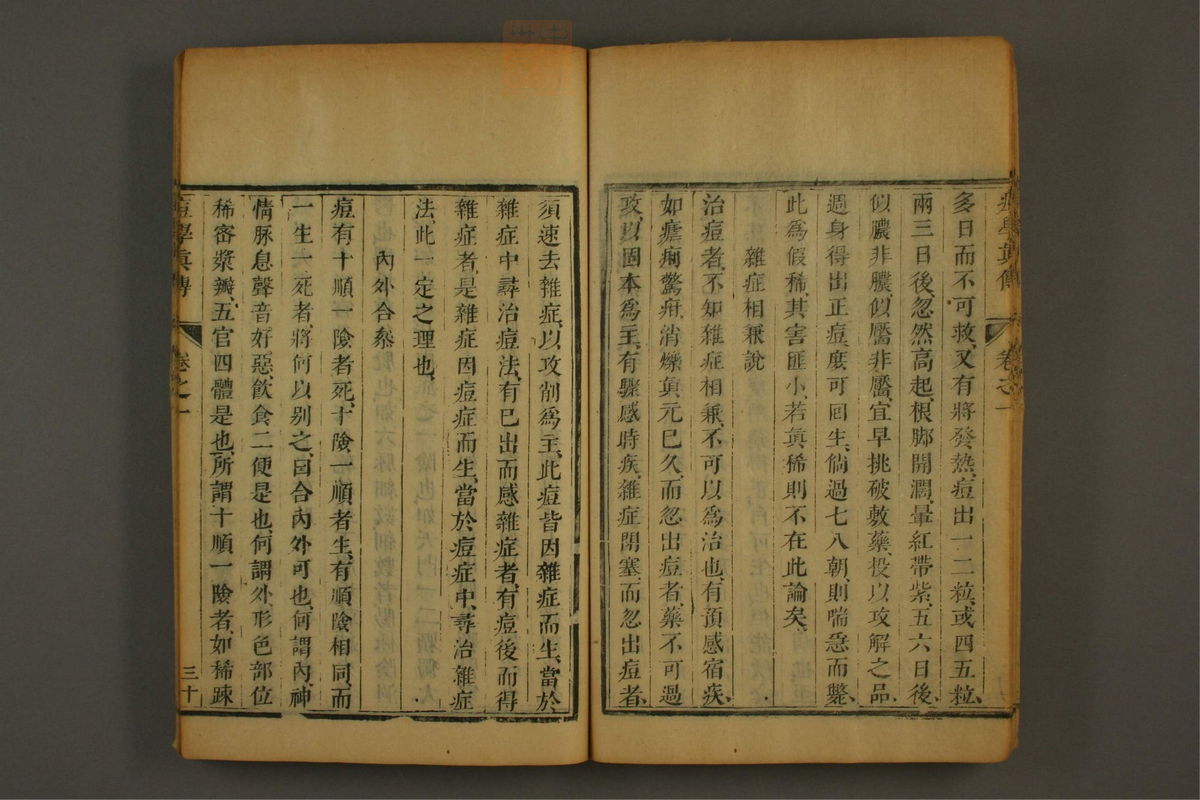 痘學眞傳 卷之一
多日而不可救、又有將發熱、痘出一二粒、或四五粒、
兩三日後忽然高起、根脚開濶、暈紅帶紫、五六日後、
似膿非膿、似靨非靨、宜早挑破敷藥、投以攻解之品、
週身得出正痘、庶可囘生、倘過七八朝、則喘急而斃、
此爲假稀、其害匪小、若眞稀則不在此論矣、
雜症相兼說
治痘者、不知雜症相兼、不可以爲治也、有預感宿疾、
如瘧痢驚疳、消爍眞元已久、而忽出痘者、藥不可過
攻、以固本爲主、有驟感時疾、雜症閉塞、而忽出痘者、
須速去雜症、以攻削爲主、此痘皆因雜症而生、當於
雜症中尋治痘法、有已出而感雜症者、有痘後而得
雜症者、是雜症因痘症而生、當於痘症中、尋治雜症
法、此一定之理也、
內外合叅
痘有十順一險者死、十險一順者生、有順險相同、而
一生一死者、將何以别之、曰合內外可也、何謂內、神
情脉息聲音好惡、飮食二便是也、何謂外、形色部位
稀密漿瓣、五官四體是也、所謂十順一險者、如稀疎
痘學眞傳 卷之一 三十